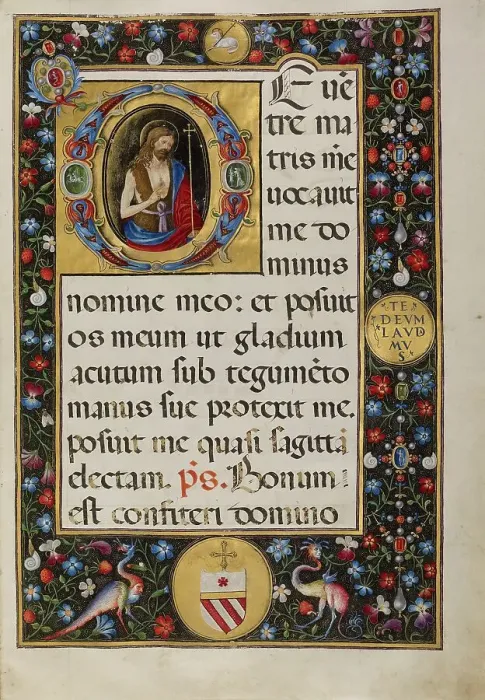 DE uē
tre ma
tris mē
uocauit
me do
minus
nomine meo: et posuit
os meum ut gladium
acutum sub tegumēto
manus sue protexit me.
posuit me quasi sagittā
electam. p̄s. Bonum
est confiteri domino
TE
DEVM
LAVD
MV
S